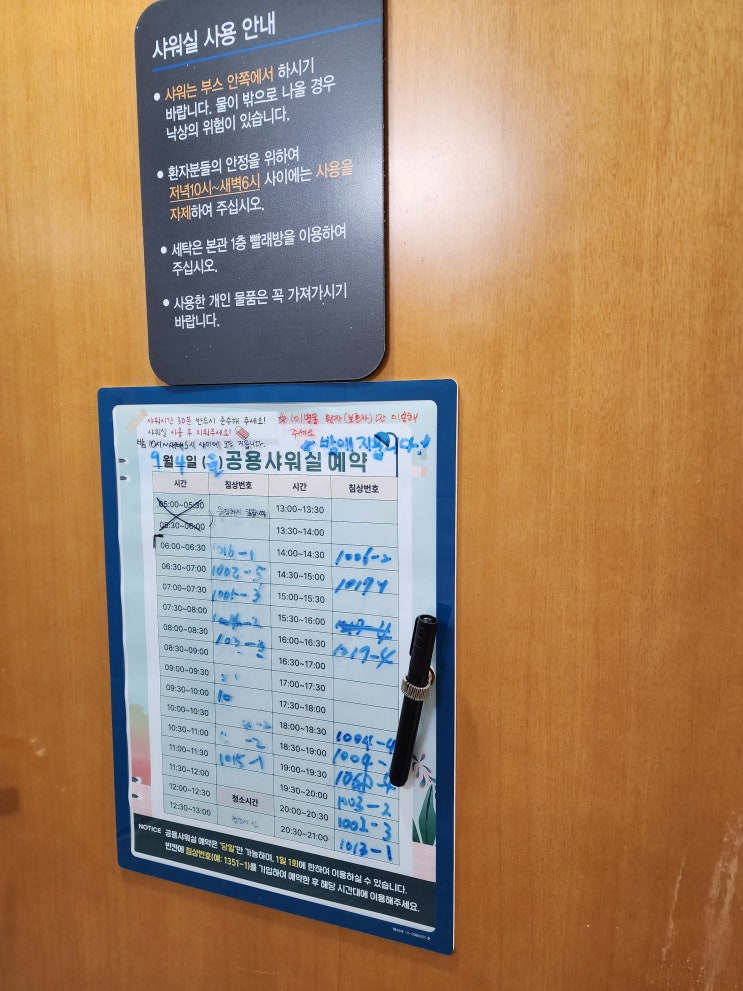 샤워실 사용 안내
• 샤워는 부스 안쪽에서 하시기
바랍니다. 물이 밖으로 나올 경우
낙상의 위험이 있습니다.
• 환자분들의 안정을 위하여
저녁10시~새벽6시 사이에는 사용을
자제하여 주십시오.
• 세탁은 본관 1층 빨래방을 이용하여
주십시오.
• 사용한 개인 물품은 꼭 가져가시기
바랍니다.
샤워시간 30분 반드시 준수해 주세요!
샤워실 사용 후 지워주세요!
주세요
9월 4일 공용샤워실 예약
시간 침상번호 시간 침상번호
05:00~05:30 13:00~13:30
05:30~06:00 13:30~14:00
06:00~06:30 14:00~14:30 1006-2
06:30~07:00 1002-5 14:30~15:00
07:00~07:30 1005-3 15:00~15:30
07:30~08:00 15:30~16:00
08:00~08:30 16:00~16:30 1017-4
08:30~09:00 16:30~17:00
09:00~09:30 17:00~17:30
09:30~10:00 10 17:30~18:00
10:00~10:30 18:00~18:30 1004-4
10:30~11:00 -2 18:30~19:00 1004-
11:00~11:30 1015-1 19:00~19:30
11:30~12:00 19:30~20:00 1003-2
12:00~12:30 청소시간 20:00~20:30 1002-3
12:30~13:00 20:30~21:00 1013-1
NOTICE 공용샤워실 예약은 "당일"만 가능하며, 1일 1회에 한하여 이용하실 수 있습니다.
빈칸에 침상번호(예: 1351-1)를 기입하여 예약한 후 해당 시간대에 이용해주세요.